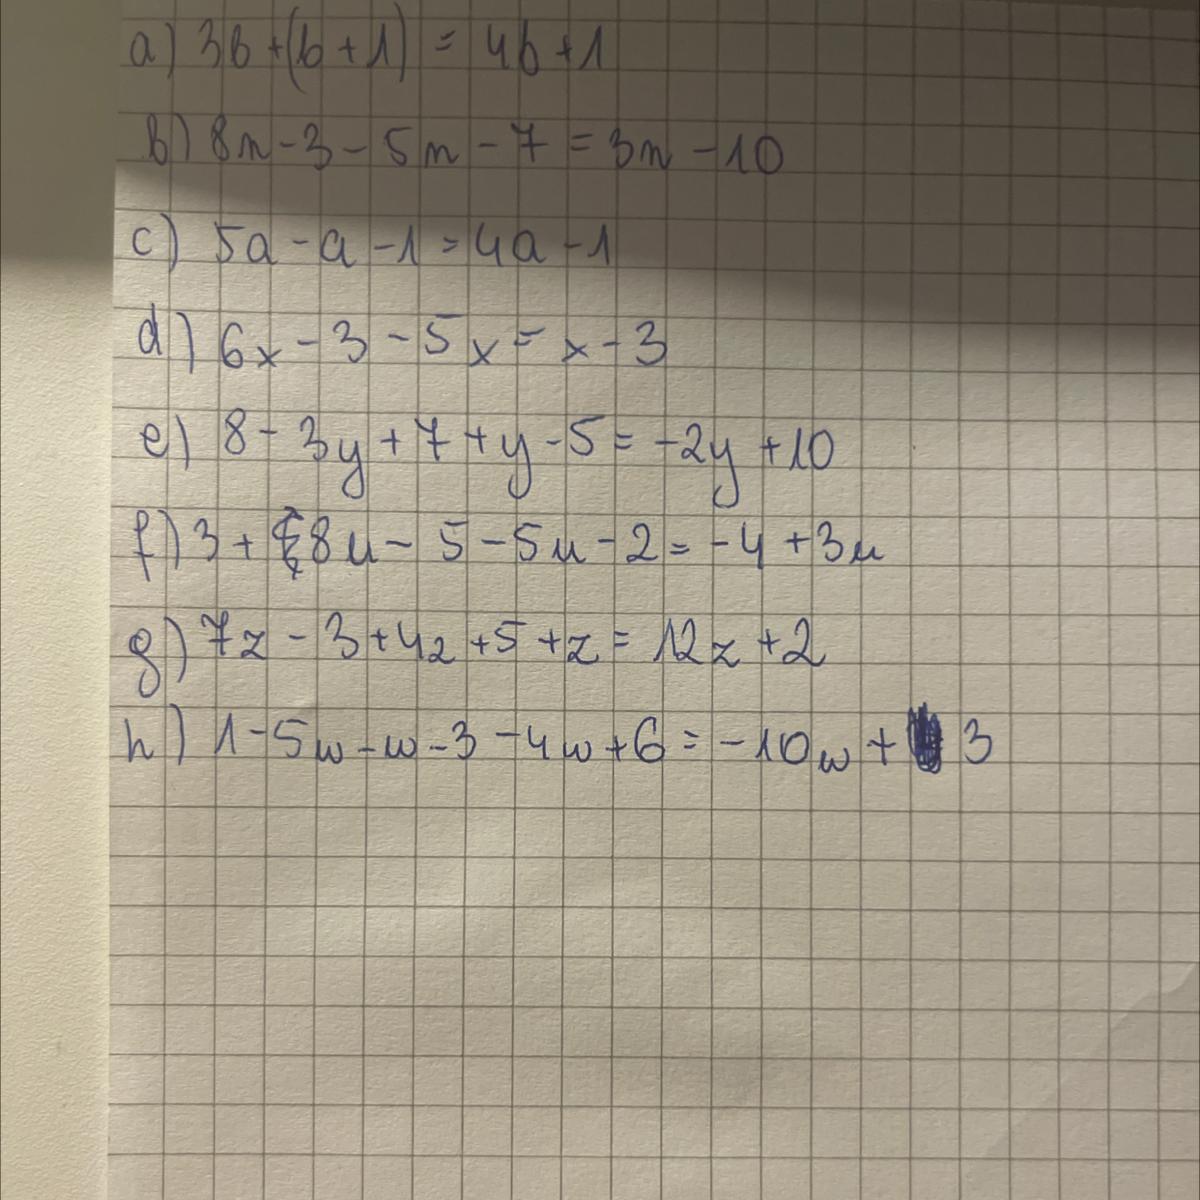 a) 3b + (b + 1) = 4b + 1
b) 8n - 3 - 5n - 7 = 3n - 10
c) 5a - a - 1 = 4a - 1
d) 6x - 3 - 5x = x - 3
e) 8 - 3y + 7 + y - 5 = -2y + 10
f) 3 + 8u - 5 - 5u - 2 = -4 + 3u
g) 7z - 3 + 4z + 5 + z = 12z + 2
h) 1 - 5w - w - 3 - 4w + 6 = -10w + 3